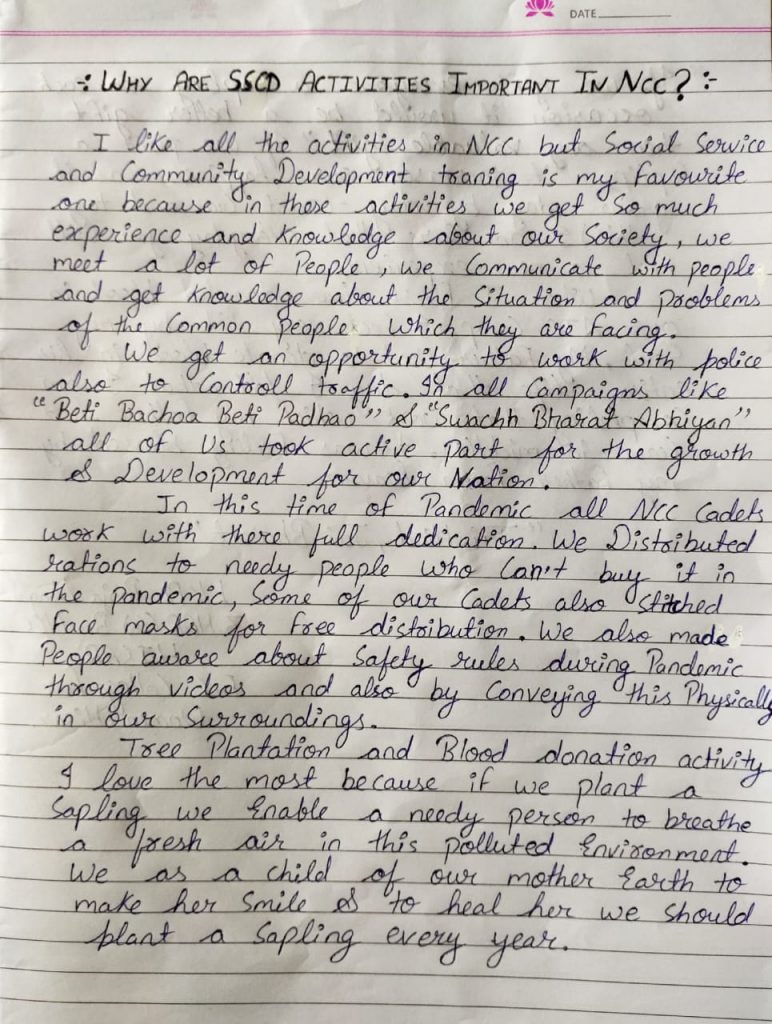 DATE
-: WHY ARE SSCD ACTIVITIES IMPORTANT IN NCC? :-
I like all the activities in NCC but Social Service
and Community Development traning is my favourite
one because in these activities we get so much
experience and knowledge about our Society, we
meet a lot of People, we Communicate with people
and get knowledge about the Situation and problems
of the Common people which they are facing.
We get an opportunity to work with police
also to Controll traffic. In all Campaigns like
"Beti Bachoa Beti Padhao" & "Swachh Bharat Abhiyan"
all of Us took active part for the growth
& Development for our Nation.
In this time of Pandemic all NCC Cadets
work with there full dedication. We Distributed
rations to needy people who Can't buy it in
the pandemic, Some of our Cadets also stitched
Face masks for free distribution. We also made
People aware about Safety rules during Pandemic
through videos and also by Conveying this Physically
in our Surroundings.
Tree Plantation and Blood donation activity
I love the most because if we plant a
Sapling we Enable a needy person to breathe
a fresh air in this polluted Environment.
We as a child of our mother Earth to
make her Smile & to heal her we should
plant a Sapling every year.